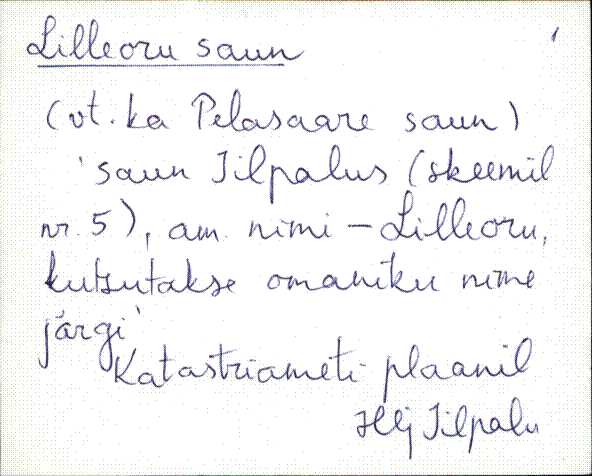 Lilleoru saun
(vt. ka Pelasaare saun)
'saun Jilpalus (skeemil
nr. 5), am. nimi – Lilleoru,
kutsutakse omaniku nime
järgi'
Katastriameti plaanil
Hlj Jilpalu